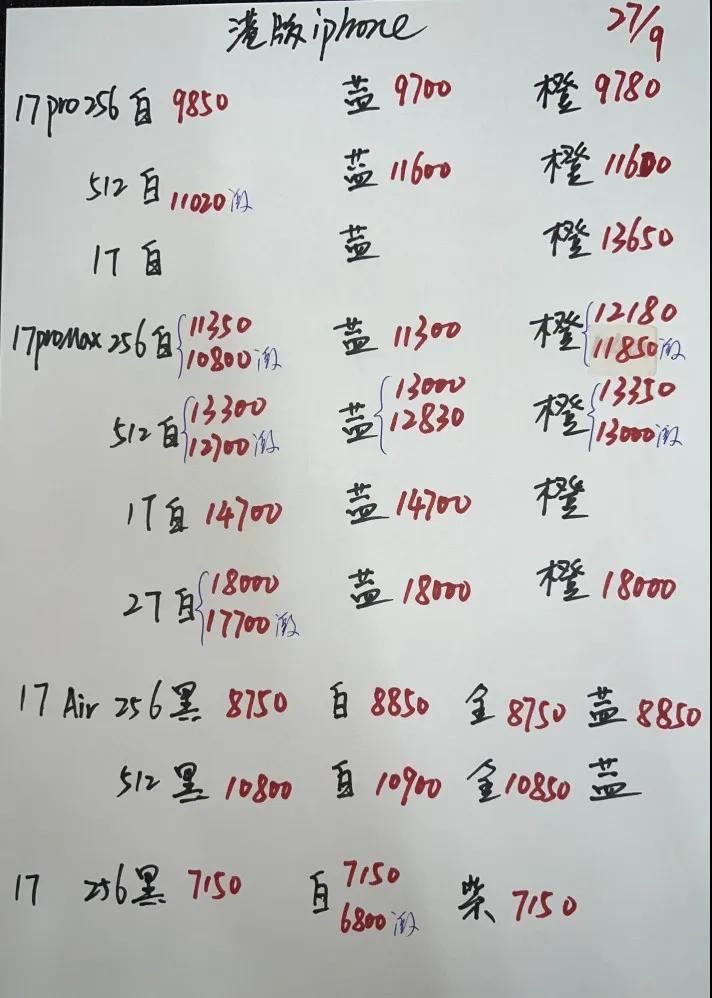 港版iphone 27/9
17pro256白 9850 蓝 9700 橙 9780
512白 11020激 蓝 11600 橙 11600
1T白 蓝 橙 13650
17proMax 256白 11350 10800激 蓝 11300 橙 12180 11850激
512白 13300 12700激 蓝 13000 12830 橙 13350 13000激
1T白 14700 蓝 14700 橙
2T白 18000 17700激 蓝 18000 橙 18000
17 Air 256黑 8750 白 8850 金 8750 蓝 8850
512黑 10800 白 10900 金 10850 蓝
17 256黑 7150 白 7150 6800激 紫 7150